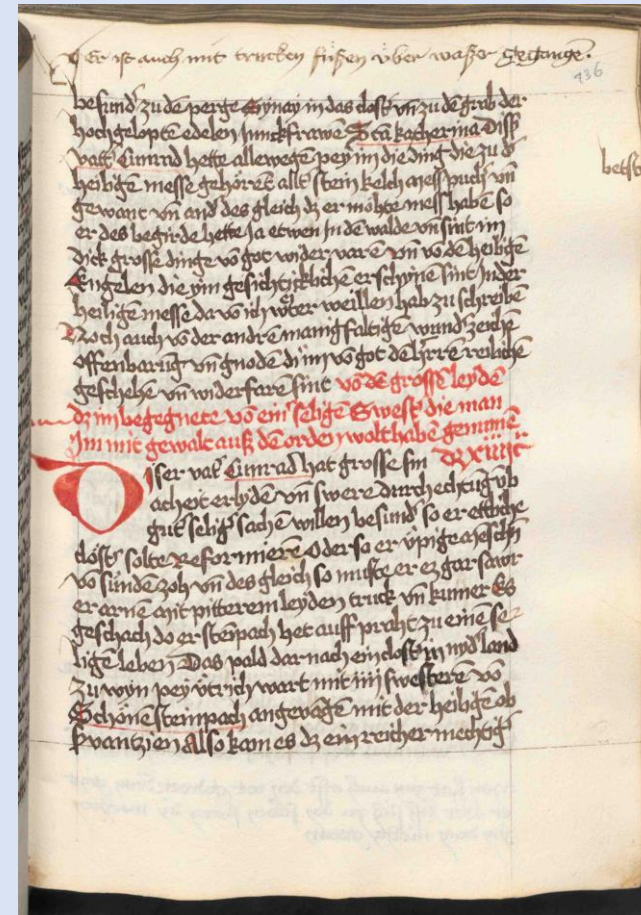 Er ist auch mit trucken füßen über waßer gegangē.
436
besund' zu dē perge Synay in das clost' vn̄ zu dē grab der
hochgeloptē edelen Junckfrawen Stā katherina Diß'
vatt' Cunrad hette allewegen pey im die ding die zu d'
heiligē messe gehörēt allt' stein kelch mess puch vn̄
gewant vn̄ and' des gleich dz er möhte mess haben so
er des begirde hette Ja etwen in dē walde vn̄ sint im
dick grosse dinge vō got widervarē vn̄ vō dē heiligē
Engelen die ym gesichticklichē erschynē sint in der
heiligē messe da vō ich w̄ter weillen hab zu schreibē
Noch auch vō der andrē manigfaltigē wund' zeichē
offenbarūg vn̄ gnodē di im vō got dē h'rrē
geschehē vn̄ widerfarē sint vō dē grossē leydē
dz im begegnete vō ein' seligē Swest' die man
Im mit gewalt auß dē ordē wolt haben genumē
Diser vat' Cunrad hat grosse sm
acheit erlydē vn̄ swere durchechtūg vb
gut' selig' sachē willen besund' so er ettliche
clöst' solte Reformieren Oder so er üpige mēschē
vō sündē zoh vn̄ des gleich so muste er ez gar sawr
er arnē mit pitterem leydē truck vn̄ kumer Es
geschach do er stēinpach het auff praht zu einē se
ligē leben Das pald dar nach ein clost' in nyd' land
zu wyn pey ütrich wart mit iiij swesterē vō
Schönēsteinpach angevāgē mit der heiligē ob
s'vantzien Also kam es dz ein reicher mechtig'
betst